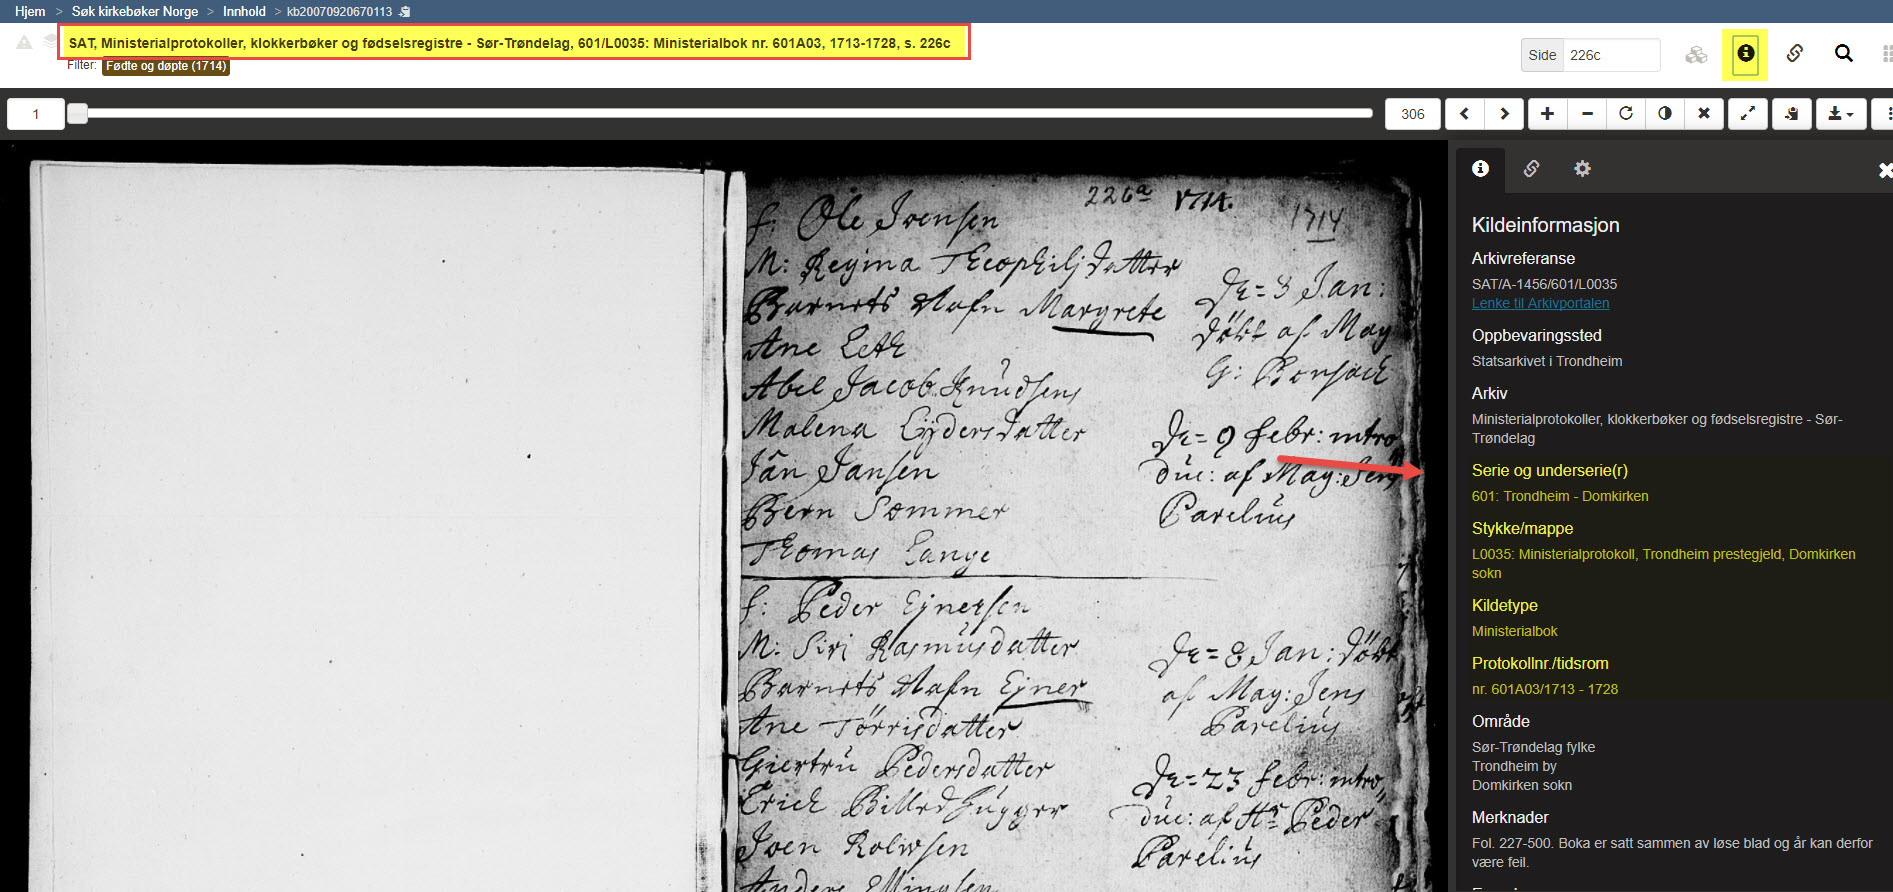 Hjem > Søk kirkebøker Norge > Innhold > kb20070920670113
SAT, Ministerialprotokoller, klokkerbøker og fødselsregistre - Sør-Trøndelag, 601/L0035: Ministerialbok nr. 601A03, 1713-1728, s. 226c
Filter: Fødte og døpte (1714)
Side 226c
1
306
226a 1714.
1714
f: Ole Joensen
M: Regina Theophilj datter
Barnets Nafn Margrete
Ane Leth
Abel Jacob Knudsens
Malena Eijdersdatter
Jân Jansen
Bern Sommer
Thomas Lange
De= 3 Jan:
döbt af May
G: Bonsach
De= 9 febr: intro
duc: af May: Jens
Parelius
f: Peder Ejnersen
M: Siri Rasmusdatter
Barnets Nafn Ejner
Ane Törrisdatter
Giertru Pedersdatter
Erich Billedhugger
Joen Rolfsen
Anders Ellingsen
De= 8 Jan: döbt
af May: Jens
Parelius
De= 23 febr: intro
duc: af Hr Peder
Parelius
Kildeinformasjon
Arkivreferanse
SAT/A-1456/601/L0035
Lenke til Arkivportalen
Oppbevaringssted
Statsarkivet i Trondheim
Arkiv
Ministerialprotokoller, klokkerbøker og fødselsregistre - Sør-
Trøndelag
Serie og underserie(r)
601: Trondheim - Domkirken
Stykke/mappe
L0035: Ministerialprotokoll, Trondheim prestegjeld, Domkirken
sokn
Kildetype
Ministerialbok
Protokollnr./tidsrom
nr. 601A03/1713 - 1728
Område
Sør-Trøndelag fylke
Trondheim by
Domkirken sokn
Merknader
Fol. 227-500. Boka er satt sammen av løse blad og år kan derfor
være feil.